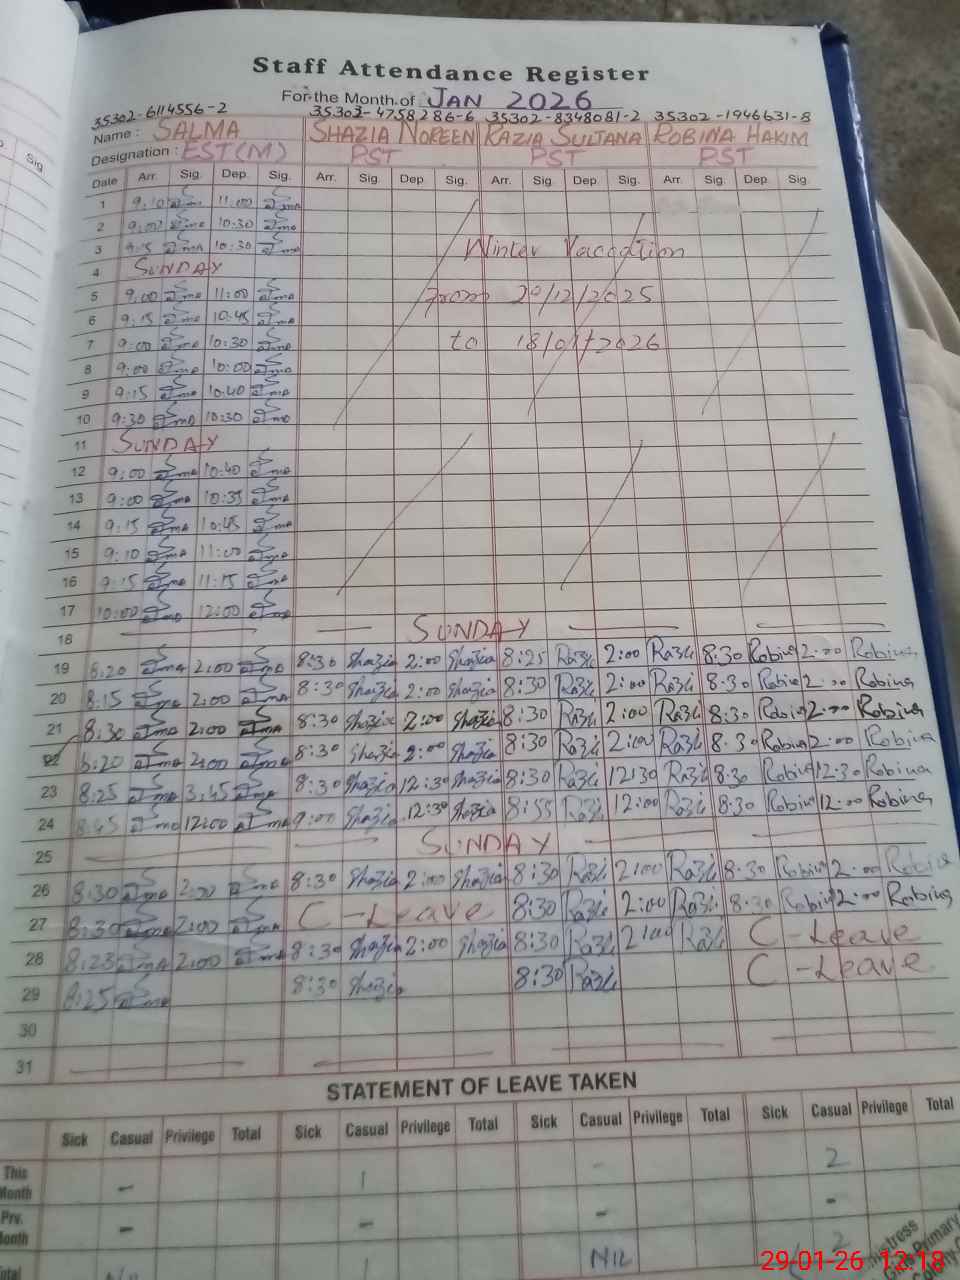 Staff Attendance Register
For the Month of JAN 2026
35302-6114556-2 35303-4758286-6 35302-8348081-2 35302-1946631-8
Name : SALMA SHAZIA NOREEN RAZIA SULTANA ROBINA HAKIM
Designation : EST(M) PST PST PST
Date Arr. Sig. Dep. Sig. Arr. Sig. Dep. Sig. Arr. Sig. Dep. Sig. Arr. Sig. Dep. Sig.
1 9:10 11:00
2 9:00 10:30
3 9:15 10:30 Winter Vacation
4 SUNDAY
5 9:00 11:00 From 20/12/2025
6 9:15 10:45
7 9:00 10:30 to 18/01/2026
8 9:00 10:00
9 9:15 10:40
10 9:30 10:30
11 SUNDAY
12 9:00 10:40
13 9:00 10:35
14 9:15 10:45
15 9:10 11:00
16 9:15 11:15
17 10:00 12:00
18 SUNDAY
19 8:20 2:00 8:30 Shazia 2:00 Shazia 8:25 2:00 8:30 Robina 2:00 Robina
20 8:15 2:00 8:30 Shazia 2:00 Shazia 8:30 2:00 8:30 Robina 2:00 Robina
21 8:30 2:00 8:30 Shazia 2:00 Shazia 8:30 2:00 8:30 Robina 2:00 Robina
22 8:20 2:00 8:30 Shazia 2:00 Shazia 8:30 2:00 8:30 Robina 2:00 Robina
23 8:25 3:45 8:30 Shazia 12:30 Shazia 8:30 12:30 8:30 Robina 12:30 Robina
24 8:45 12:00 9:00 Shazia 12:30 Shazia 8:55 12:00 8:30 Robina 12:00 Robina
25 SUNDAY
26 8:30 2:00 8:30 Shazia 2:00 Shazia 8:30 2:00 8:30 Robina 2:00 Robina
27 8:30 2:00 C-Leave 8:30 2:00 8:30 Robina 2:00 Robina
28 8:23 2:00 8:30 Shazia 2:00 Shazia 8:30 2:00 C-Leave
29 8:25 8:30 Shazia 8:30 C-Leave
30
31
STATEMENT OF LEAVE TAKEN
Sick Casual Privilege Total Sick Casual Privilege Total Sick Casual Privilege Total Sick Casual Privilege Total
This Month - 1 - 2
Prv. Month - - - -
Total 1 Nil 2
29-01-26 12:18